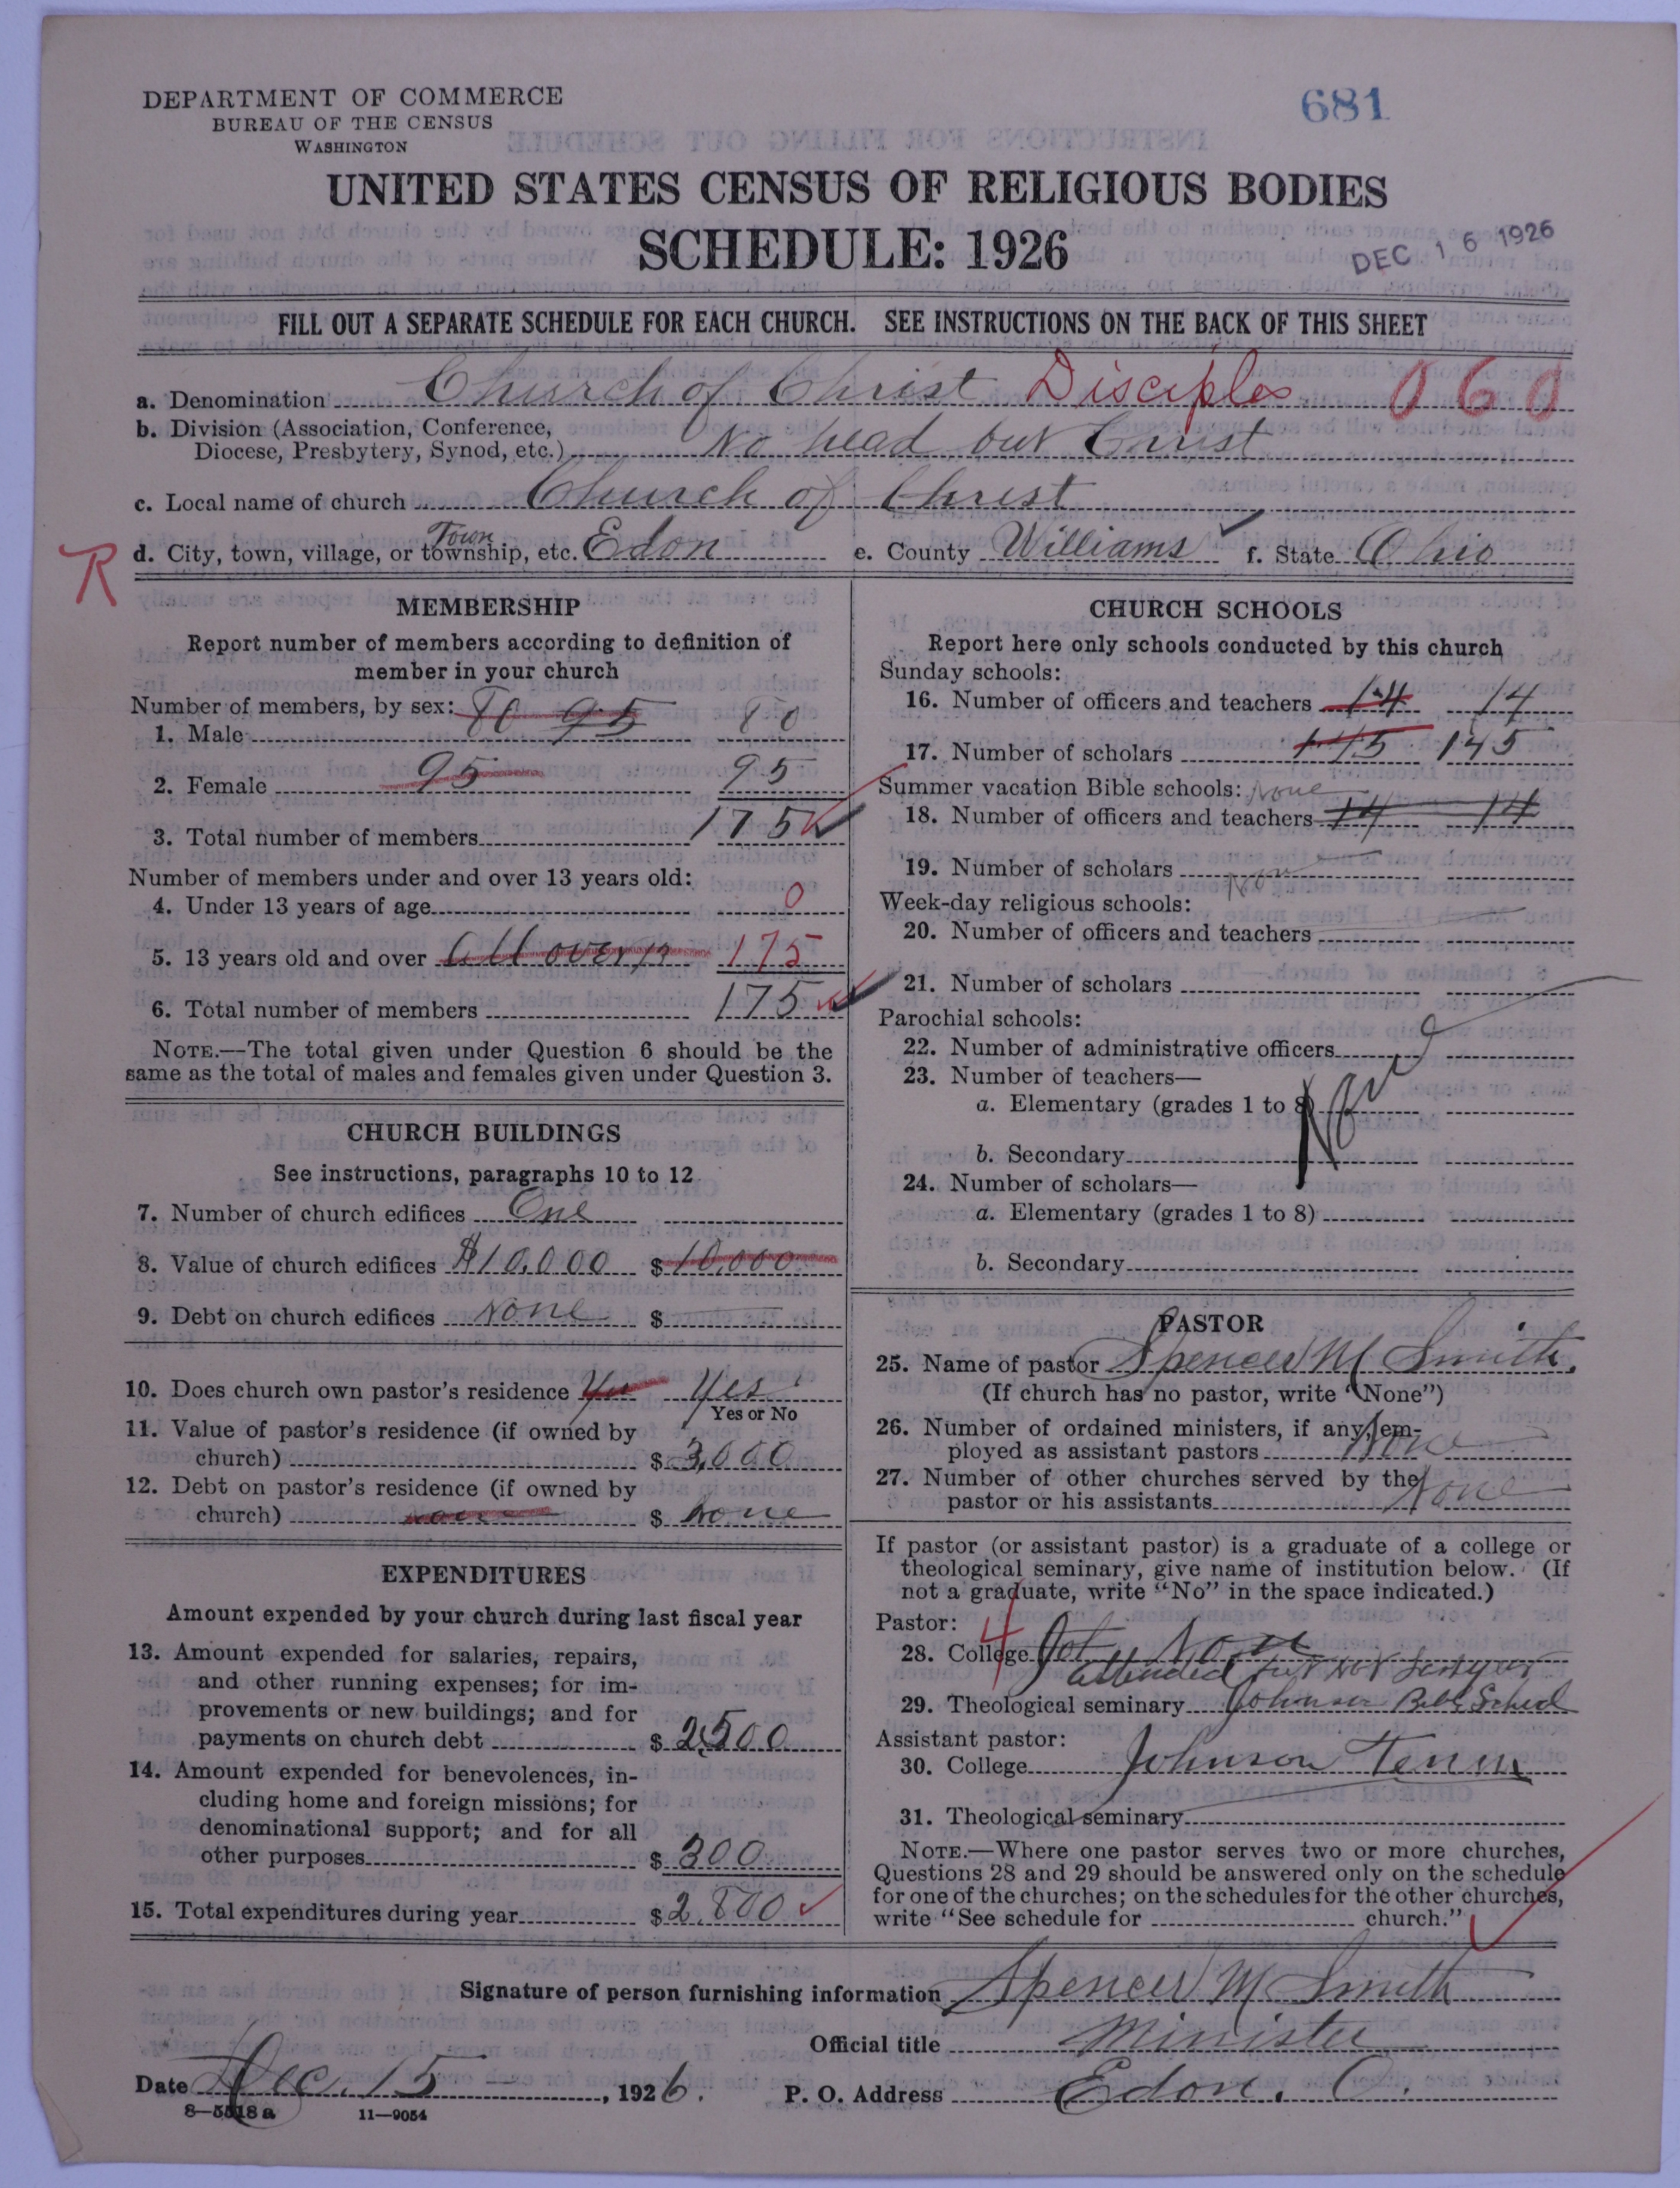 DEPARTMENT OF COMMERCE
BUREAU OF THE CENSUS
WASHINGTON
681
UNITED STATES CENSUS OF RELIGIOUS BODIES
SCHEDULE: 1926
DEC 16 1926
FILL OUT A SEPARATE SCHEDULE FOR EACH CHURCH. SEE INSTRUCTIONS ON THE BACK OF THIS SHEET
a. Denomination Church of Christ Disciples 060
b. Division (Association, Conference,
Diocese, Presbytery, Synod, etc.) No head but Christ
c. Local name of church Church of Christ
Town
R d. City, town, village, or township, etc. Edon e. County Williams f. State Ohio
MEMBERSHIP
Report number of members according to definition of
member in your church
Number of members, by sex:
1. Male 80 95 80
2. Female 95 95
3. Total number of members 175
Number of members under and over 13 years old:
4. Under 13 years of age 0
5. 13 years old and over All over 175
6. Total number of members 175
NOTE.—The total given under Question 6 should be the
same as the total of males and females given under Question 3.
CHURCH BUILDINGS
See instructions, paragraphs 10 to 12
7. Number of church edifices One
8. Value of church edifices $10,000 $ 10,000
9. Debt on church edifices None $
10. Does church own pastor's residence Yes Yes
Yes or No
11. Value of pastor's residence (if owned by
church) $ 3,000
12. Debt on pastor's residence (if owned by
church) none $ none
EXPENDITURES
Amount expended by your church during last fiscal year
13. Amount expended for salaries, repairs,
and other running expenses; for im-
provements or new buildings; and for
payments on church debt $ 2,500
14. Amount expended for benevolences, in-
cluding home and foreign missions; for
denominational support; and for all
other purposes $ 300
15. Total expenditures during year $ 2,800
CHURCH SCHOOLS
Report here only schools conducted by this church
Sunday schools:
16. Number of officers and teachers 14 14
17. Number of scholars 145 145
Summer vacation Bible schools: None
18. Number of officers and teachers 14 14
19. Number of scholars None
Week-day religious schools:
20. Number of officers and teachers
21. Number of scholars
Parochial schools:
22. Number of administrative officers
23. Number of teachers—
a. Elementary (grades 1 to 8) None
b. Secondary
24. Number of scholars—
a. Elementary (grades 1 to 8)
b. Secondary
PASTOR
25. Name of pastor Spencer M Smith
(If church has no pastor, write "None")
26. Number of ordained ministers, if any, em-
ployed as assistant pastors None
27. Number of other churches served by the
pastor or his assistants None
If pastor (or assistant pastor) is a graduate of a college or
theological seminary, give name of institution below. (If
not a graduate, write "No" in the space indicated.)
Pastor:
4
28. College
attended but not
29. Theological seminary Johnson Bible School
Assistant pastor:
30. College Johnson Tenn
31. Theological seminary
NOTE.—Where one pastor serves two or more churches,
Questions 28 and 29 should be answered only on the schedule
for one of the churches; on the schedules for the other churches,
write "See schedule for church."
Signature of person furnishing information Spencer M Smith
Official title Minister
Date Dec. 15, 1926. P. O. Address Edon, O.
8—5518 a 11—9054